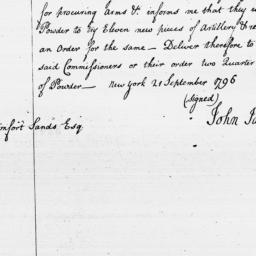 for procuring arms &c. informs me that they
Powder to try Eleven new pieces of Artillery &
an Order for the same — Deliver therefore to
said Commissioners or their order two Quarter
of Powder — New York 21 September 1796
(signed)
John
Sands Esq